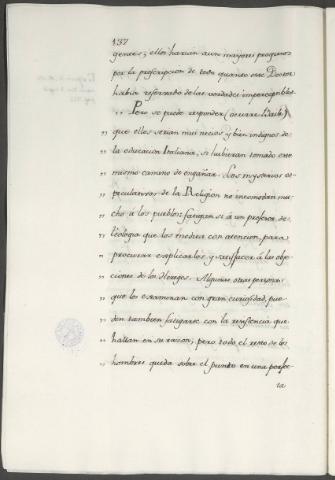 137
gences; ellos harian aun mayores progresos
por la proscripcion de todo quanto este Doctor
habia reservado de las verdades imperceptibles.
„ Pero se puede responder (observa Baile)
„ que ellos serian muy necios y bien indignos de
„ la educacion Italiana, si hubieran tomado este
„ mismo camino de engañar. Los mysterios es-
„ peculativos de la Religion no incomodan mu-
„ cho à los pueblos; fatigan si à un profesor de
„ teologia que los medita con atencion, para
„ procurar explicarlos, y satisfacer à las obje-
„ ciones de los Hereges. Algunas otras personas
„ que los examinan con gran curiosidad, pue-
„ den tambien fatigarse con la resistencia que
„ hallan en su razon; pero todo el resto de los
„ hombres queda sobre el punto en una perfec-
ta